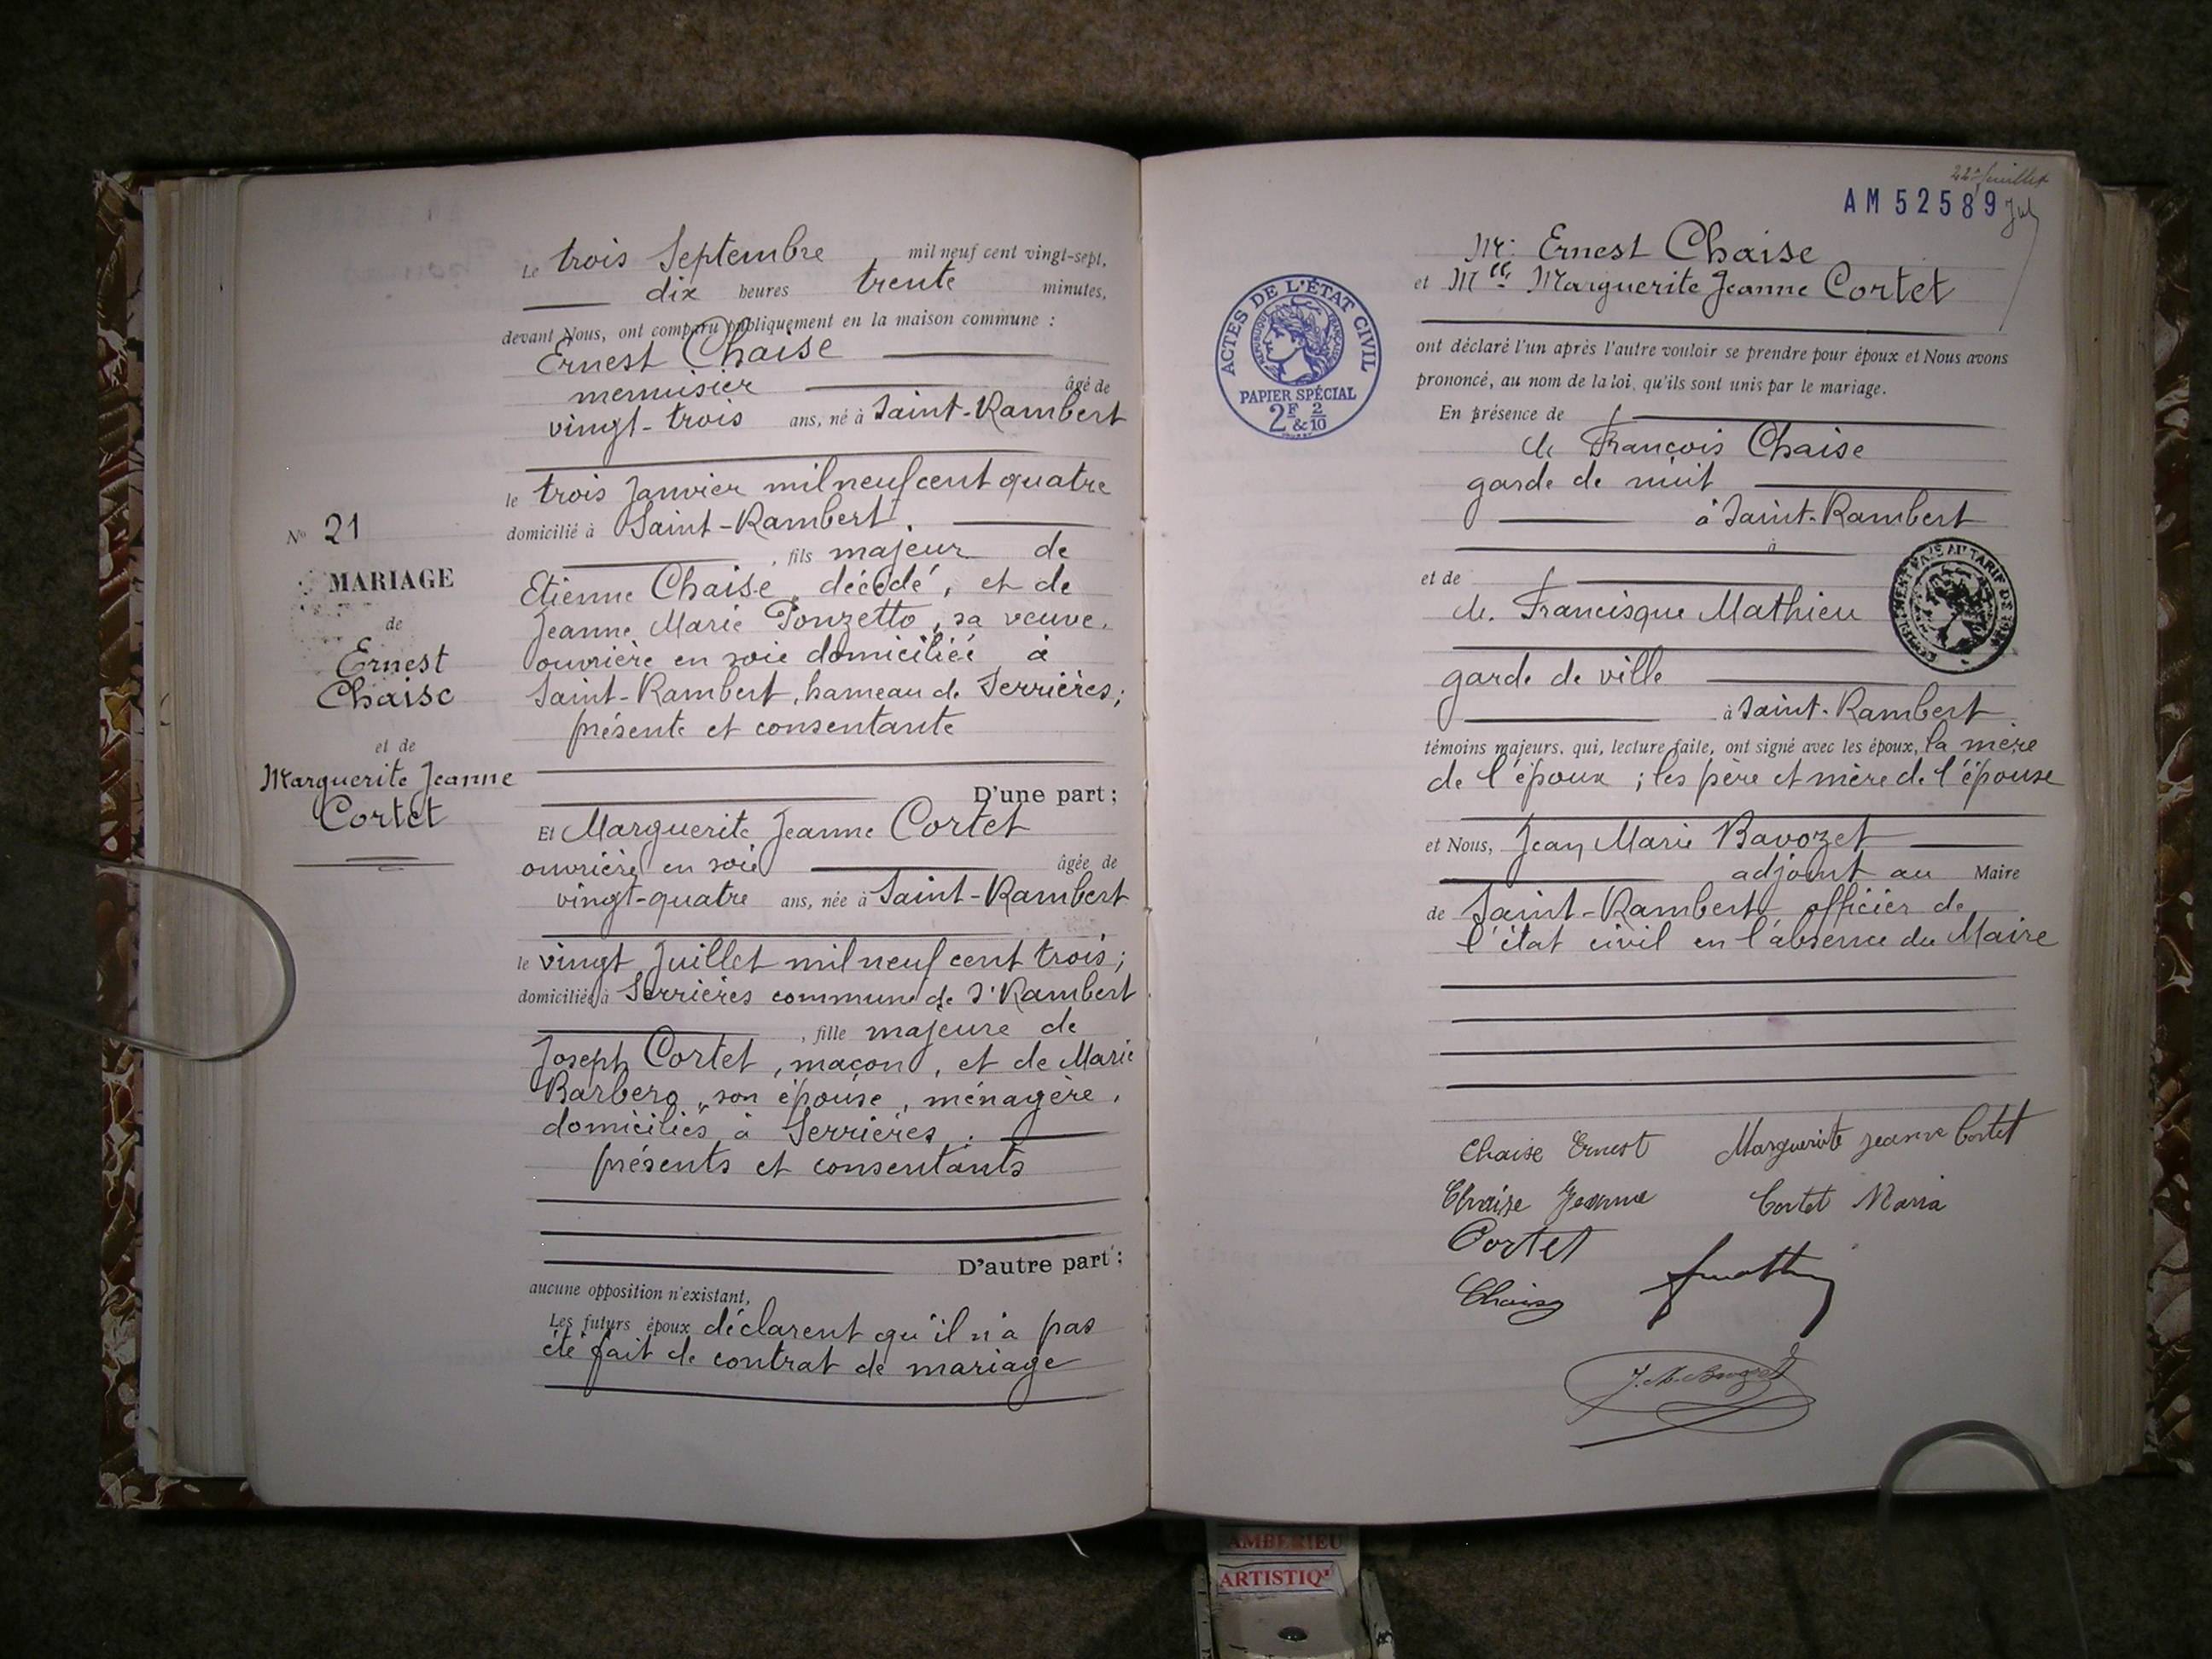 Le trois Septembre mil neuf cent vingt-sept,
dix heures trente minutes,
devant Nous, ont comparu publiquement en la maison commune :
Ernest Chaise
menuisier âgé de
vingt-trois ans, né à Saint-Rambert
le trois Janvier mil neuf cent quatre
domicilié à Saint-Rambert.
, fils majeur de
Etienne Chaise, décédé, et de
Jeanne Marie Ponzetto, sa veuve,
ouvrière en soie domiciliée à
Saint-Rambert, hameau de Serrières;
présente et consentante
D'une part ;
Et Marguerite Jeanne Cortet
ouvrière en soie âgée de
vingt-quatre ans, née à Saint-Rambert
le vingt Juillet mil neuf cent trois;
domiciliée à Serrières commune de St Rambert
, fille majeure de
Joseph Cortet, maçon, et de Marie
Barbero, son épouse, ménagère,
domiciliés à Serrières.
présents et consentants
D'autre part ;
aucune opposition n'existant,
Les futurs époux déclarent qu'il n'a pas
été fait de contrat de mariage
No 21
MARIAGE
de
Ernest
Chaise
et de
Marguerite Jeanne
Cortet
22e feuillet
AM 52589
Mr Ernest Chaise
et Melle Marguerite Jeanne Cortet
ont déclaré l'un après l'autre vouloir se prendre pour époux et Nous avons
prononcé, au nom de la loi, qu'ils sont unis par le mariage.
En présence de
de François Chaise
garde de nuit
à Saint-Rambert
à
et de
de Francisque Mathieu
garde de ville
à Saint-Rambert
témoins majeurs, qui, lecture faite, ont signé avec les époux, la mère
de l'époux ; les père et mère de l'épouse
et Nous, Jean Marie Bavozet
adjoint au Maire
de Saint-Rambert officier de
l'état civil en l'absence du Maire
Chaise Ernest Marguerite Jeanne Cortet
Chaise Jeanne Cortet Maria
Cortet
Chaise
ACTES DE L'ÉTAT CIVIL
RÉPUBLIQUE FRANÇAISE
PAPIER SPÉCIAL
2F & 2/10
AMBERIEU
ARTISTIQ